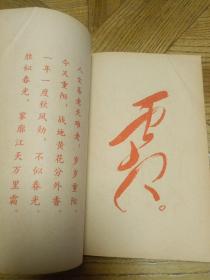 霜。
人生易老天难老，岁岁重阳。
今又重阳，战地黄花分外香。
一年一度秋风劲，不似春光。
胜似春光，寥廓江天万里霜。